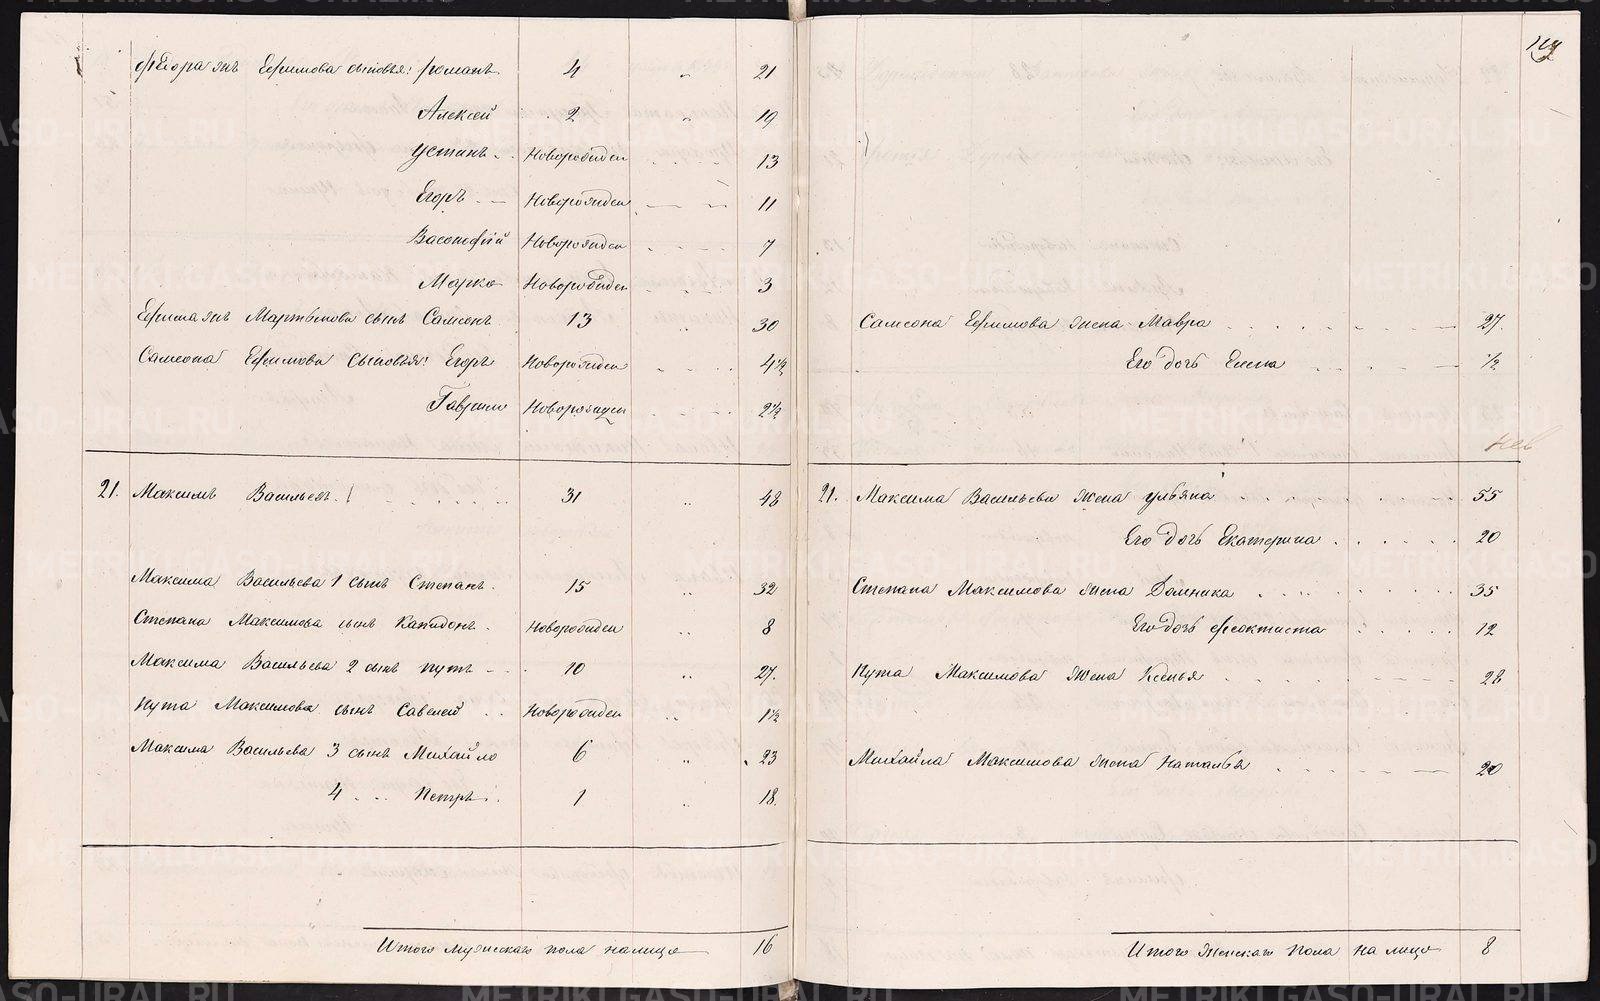 Ѳедора энъ Ефимова сыновья: Романъ 4 " 21
Алексей 2 " 19
Устинъ Новорожден 13
Егоръ Новорожден 11
Васонофий Новорожден 7
Марко Новорожден 3
Ефима энъ Мартынова сынъ Самсонъ 13 " 30
Самсона Ефимова сыновья: Егоръ Новорожден 4½
Гаврило Новорожден 2½
21. Максимъ Васильевъ 31 " 48
Максима Васильева 1 сынъ Степанъ 15 " 32
Степана Максимова сынъ Капидонъ Новорожден " 8
Максима Васильева 2 сынъ Нутъ 10 " 27.
Нута Максимова сынъ Савелей Новорожден " 1½
Максима Васильева 3 сынъ Михайло 6 " 23
4 Петръ 1 " 18.
Итого мужескаго пола налицо 16
Самсона Ефимова жена Мавра 27.
Его дочь Елена ½
21. Максима Васильева жена Ульяна 55
Его дочь Екатерина 20
Степана Максимова жена Домника 35
Его дочь Феоктиста 12
Нута Максимова жена Ксенья 28
Михайла Максимова жена Наталья 20
Итого женскаго пола на лицо 8
METRIKI.GASO-URAL.RU